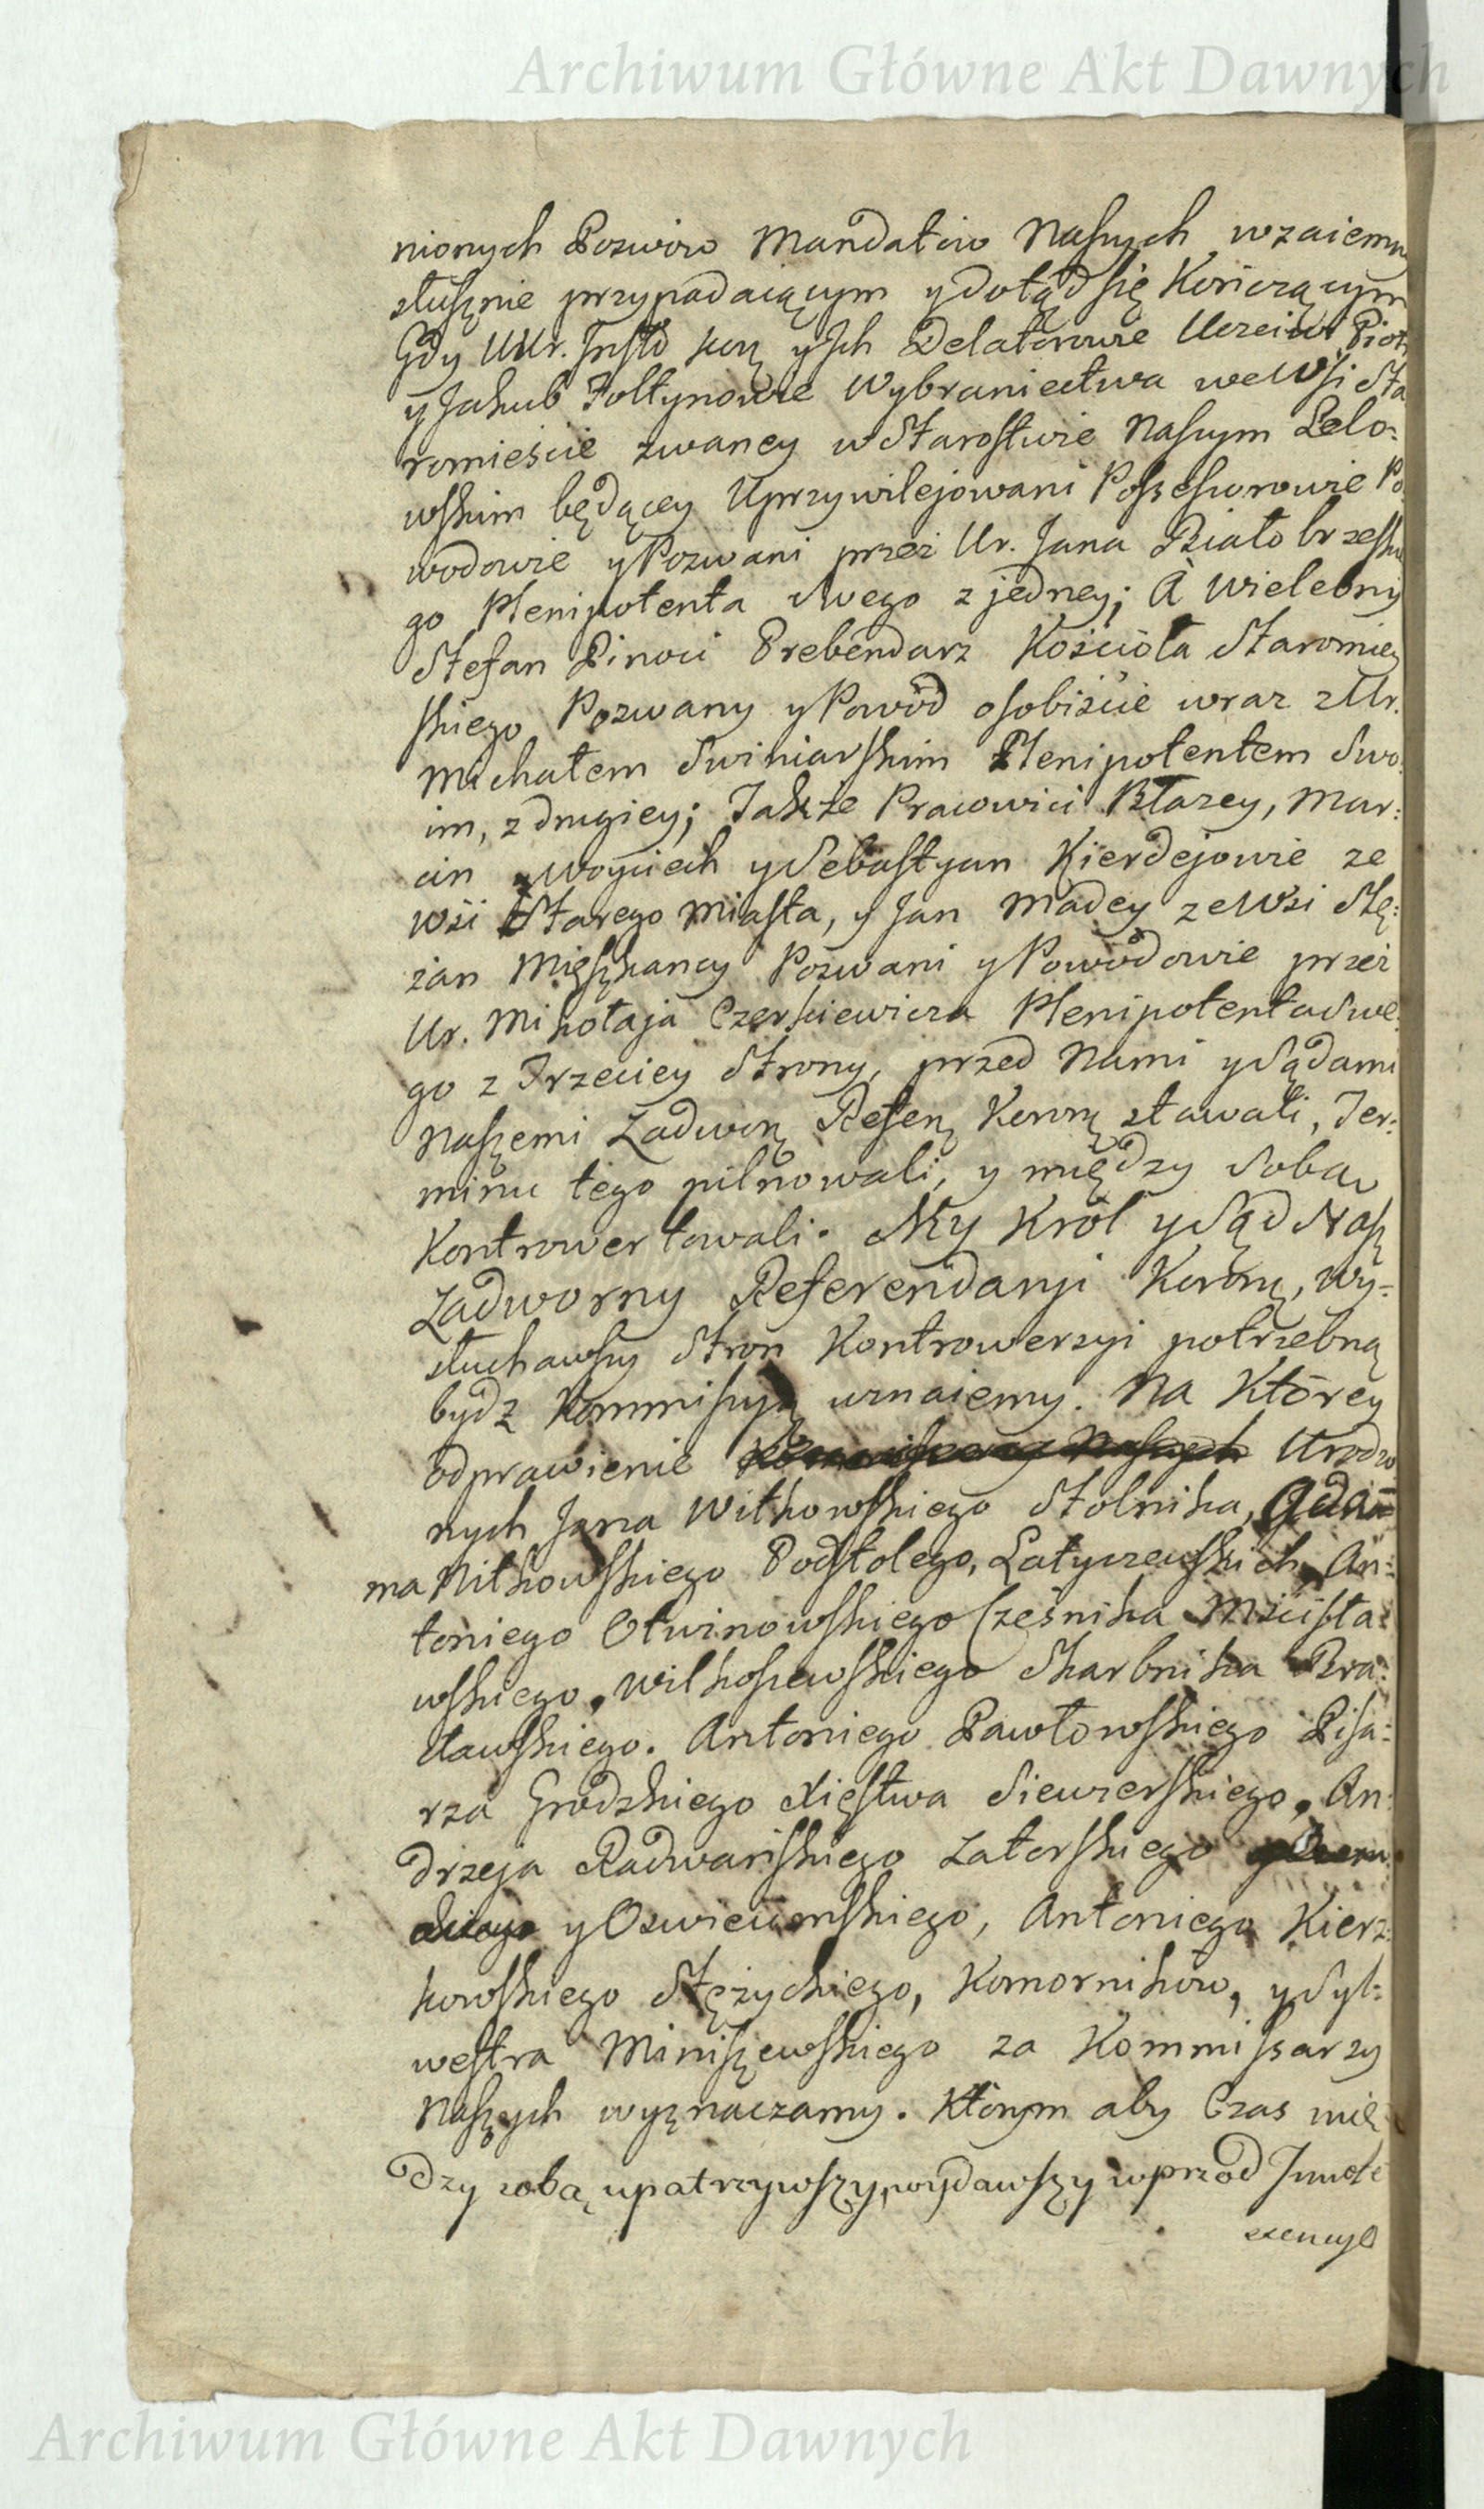 Archiwum Główne Akt Dawnych
nionych Pozwów Mandatów Naszych wzaiemn
słusznie przypadaiącym y dotąd się Kończącym
Gdy UUr. Insty y Ich Delatorowie Uczciwi Piotr
y Jakub Foltynowie Wybraniectwa we Wsi Sta
romieście zwaney w Starostwie Naszym Lelo:
wskim będącey Uprzywilejowani Possessorowie Po
wodowie y Pozwani przez Ur. Jana Białobrzeskie
go Plenipotenta Swego z jedney; A Wielebny
Stefan Pinoci Prebendarz Kościoła Staromiey
skiego Pozwany y Powód osobiście wraz z Ur.
Michałem Swiniarskim Plenipotentem Swo
im, z drugiey; Także Pracowici Błazey, Mar:
cin Woyciech y Sebastyan Kierdejowie ze
Wsi Starego Miasta, y Jan Madey ze Wsi Slę:
zan Mieszkancy Pozwani y Powodowie przez
Ur. Mikołaja Czerkiewicza Plenipotenta Swe
go z Trzeciey Strony, przed Nami y Sądami
Naszemi Zadwor Refer Koron stawali, Ter:
minu tego pilnowali, y między Sobą
Kontrowertowali. My Król y Sąd Nasz
Zadworny Referendaryi Koronn, Wy=
słuchawszy Stron Kontrowersyi potrzebną
bydz Kommissyą uznaiemy. Na Którey
odprawienie Kommissarzy Naszych Urodzo
nych Jana Witkowskiego Stolnika, Ada=
ma Nitkowskiego Podstolego, Latyczewskich, An:
toniego Otwinowskiego Cześnika Mścisła:
wskiego, Wilkoszewskiego Skarbnika Bra:
cławskiego. Antoniego Pawłowskiego Pisa:
rza Grodzkiego Xięstwa Siewierskiego, An:
drzeja Radwańskiego Zatorskiego
y Oswiecimskiego, Antoniego Kierz:
kowskiego Stężyckiego, Komorników, y Syl:
westra Miniszewskiego za Kommissarzy
Naszych wyznaczamy. Którym aby Czas mię
dzy sobą upatrzywszy, wydawszy wprzód Innote
scencye
Archiwum Główne Akt Dawnych